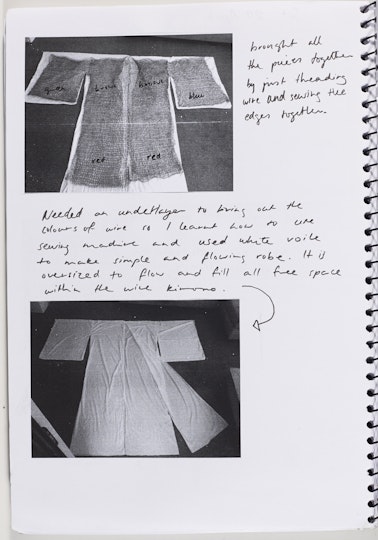 brought all
the pieces together
by just threading
wire and sewing the
edges together.
green
bronze
bronze
blue
red
red
Needed an underlayer to bring out the
colours of wire so I learnt how to use
sewing machine and used white voile
to make simple and flowing robe. It is
oversized to flow and fill all free space
within the wire kimono.